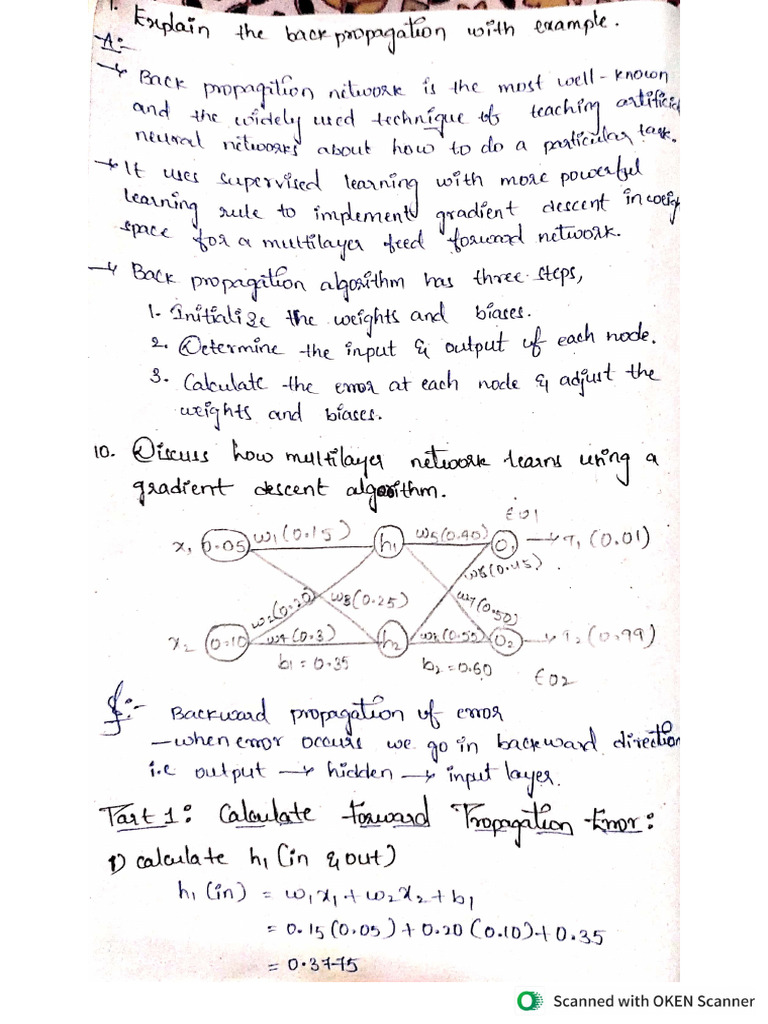 1. Explain the back propagation with example.
A:-
→ Back propagation network is the most well-known
and the widely used technique of teaching artificial
neural networks about how to do a particular task.
→ It uses supervised learning with more powerful
learning rule to implement gradient descent in weigh
space for a multilayer feed forward network.
→ Back propagation algorithm has three steps,
1. Initialize the weights and biases.
2. Determine the input & output of each node.
3. Calculate the error at each node & adjust the
weights and biases.
10. Discuss how multilayer network learns using a
gradient descent algorithm.
E01
x1 0.05 w1(0.15) h1 w5(0.40) O1 → T1 (0.01)
w6(0.45)
w2(0.20) w3(0.25) w7(0.50)
x2 0.10 w4(0.3) h2 w8(0.55) O2 → T2 (0.99)
b1 = 0.35 b2 = 0.60 E02
Backward propagation of error
- when error occurs we go in backward direction
i.e output → hidden → input layer.
Part 1: Calculate Forward Propagation Error:
1) calculate h1 (in & out)
h1 (in) = w1x1 + w2x2 + b1
= 0.15 (0.05) + 0.20 (0.10) + 0.35
= 0.3775
Scanned with OKEN Scanner